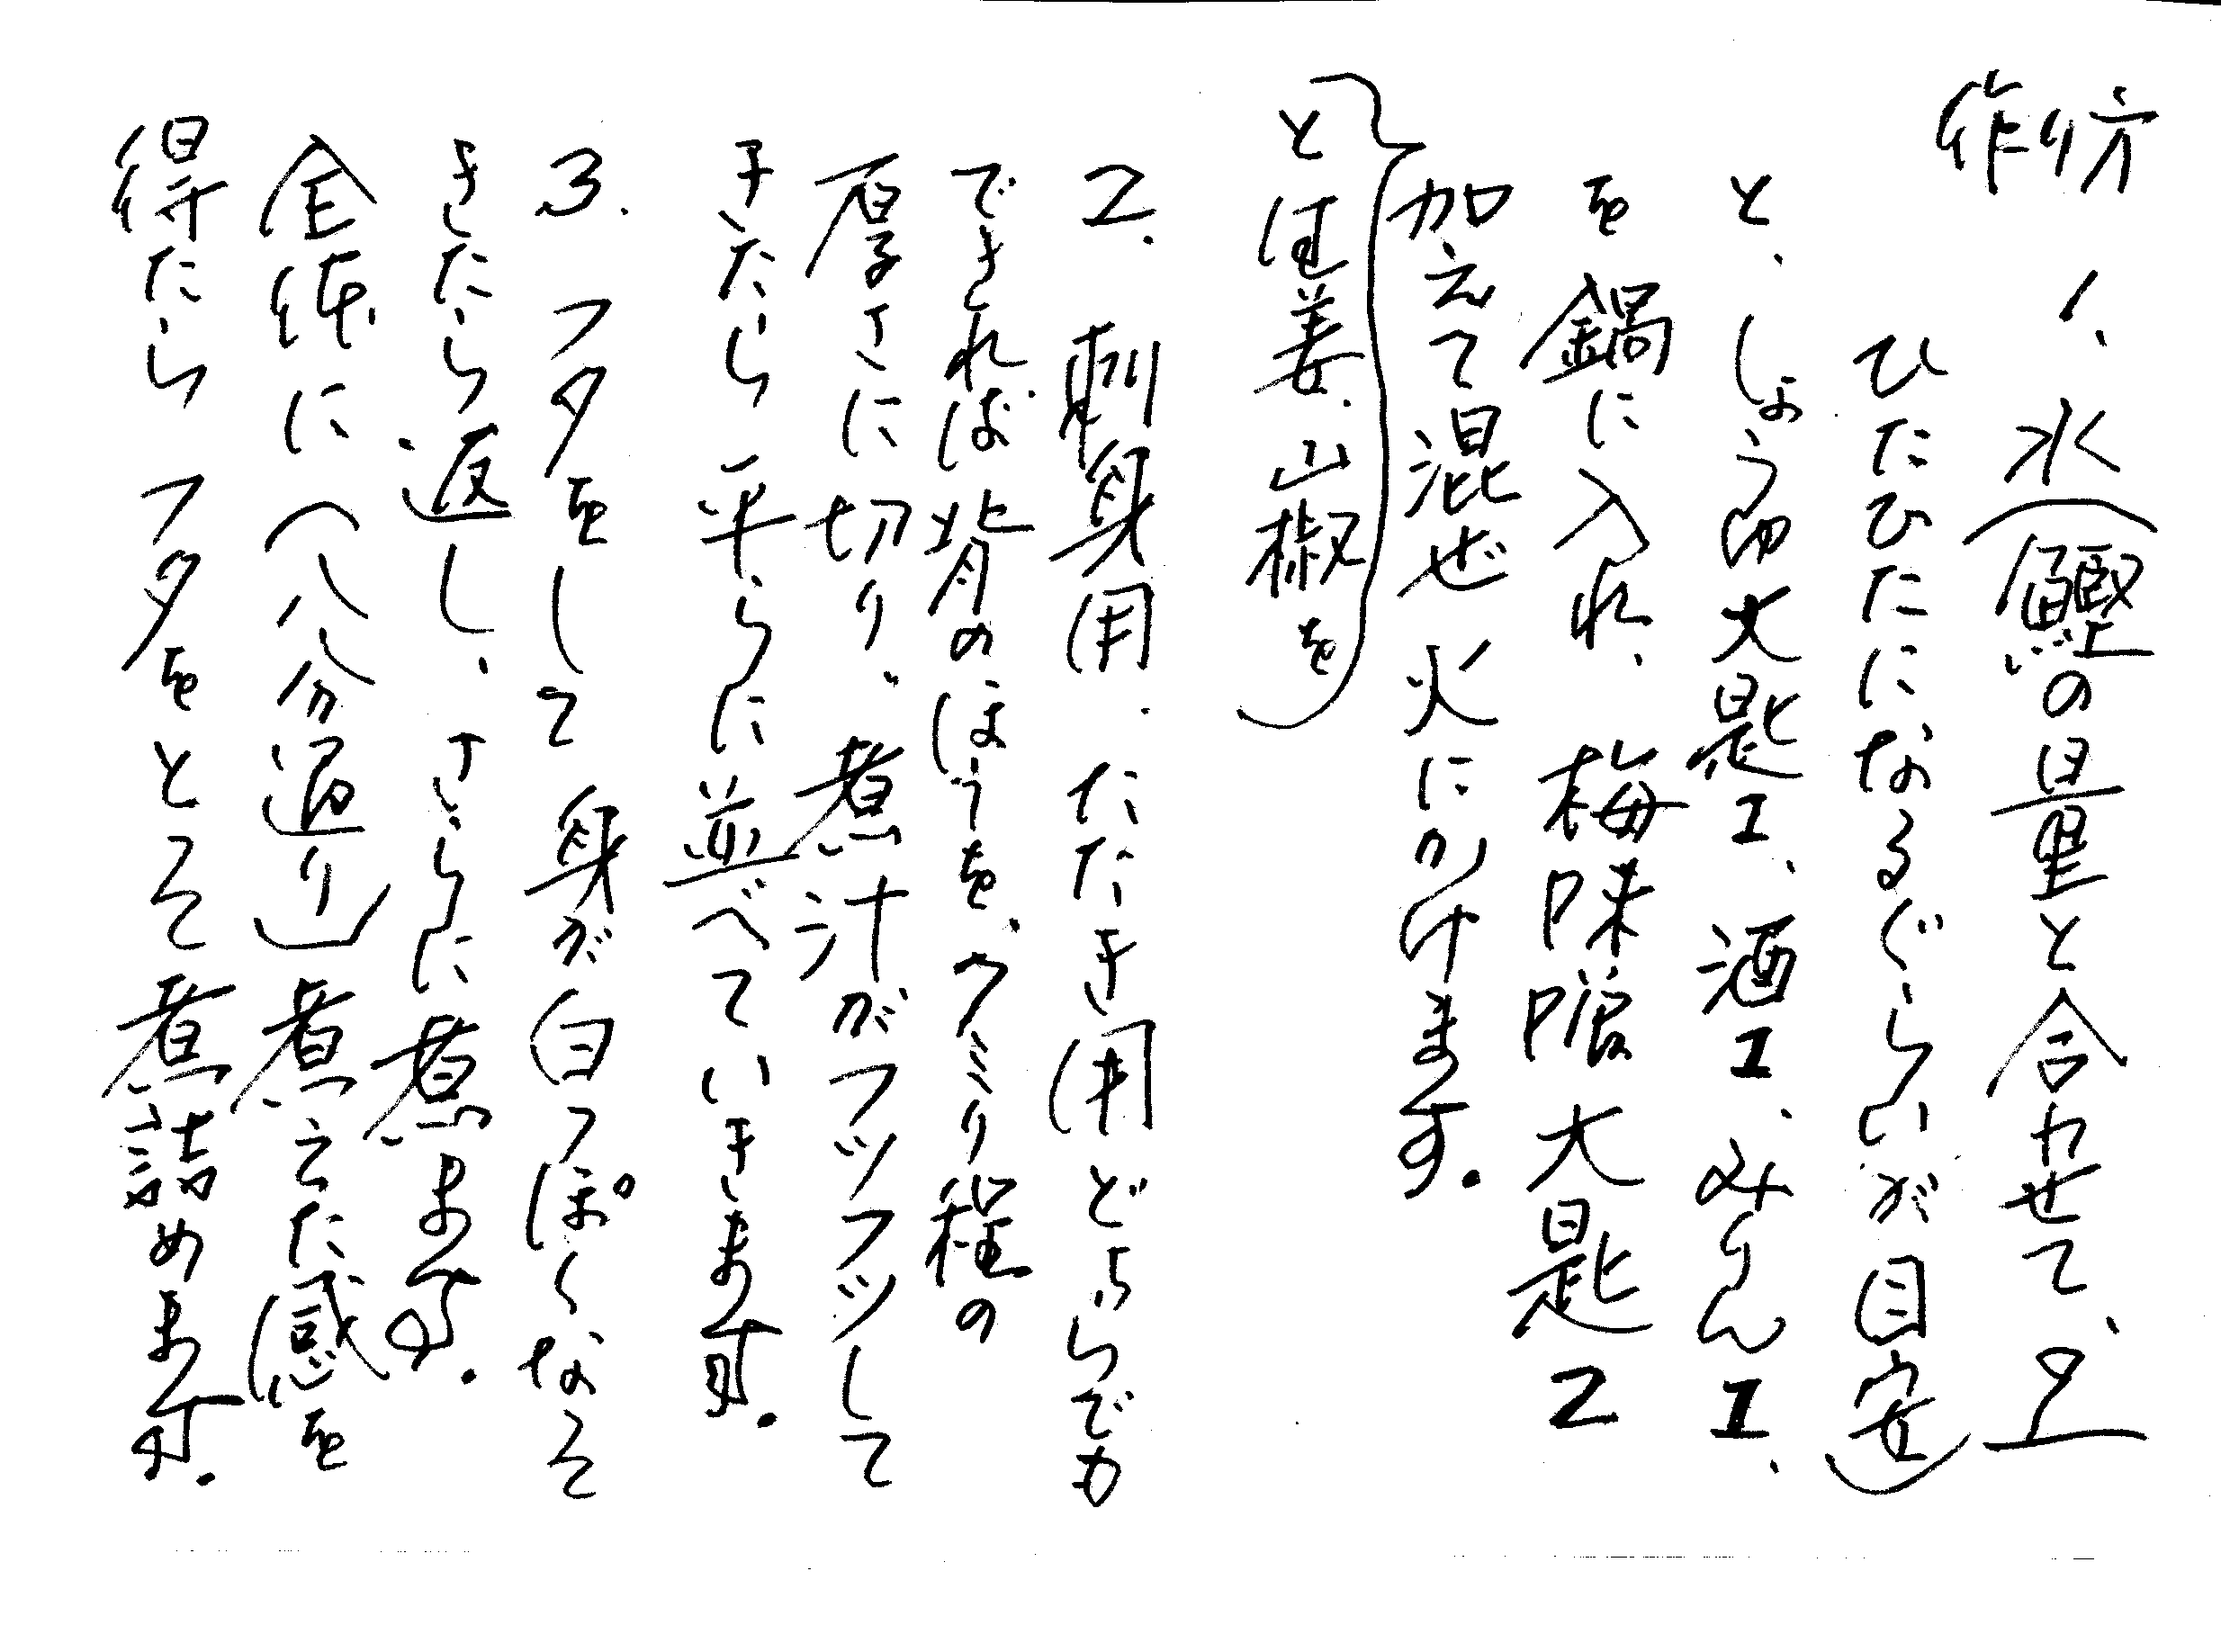 作り方
1、水(鰹の量と合わせて、
ひたひたになるぐらいが目安)
と、しょう油大匙1、酒1、みりん1、
を鍋に入れ、梅味噌大匙2
と生姜、山椒を
加えて混ぜ火にかけます。
2. 刺身用. たたき用どちらでも
できれば背のほうを、7ミリ程の
厚さに切り、煮汁がフツフツして
きたら平らに並べていきます。
3. フタをして身が白っぽくなって
きたら返し、さらに煮ます。
全体に(八分通り)煮えた感を
得たらフタをとって煮詰めます。